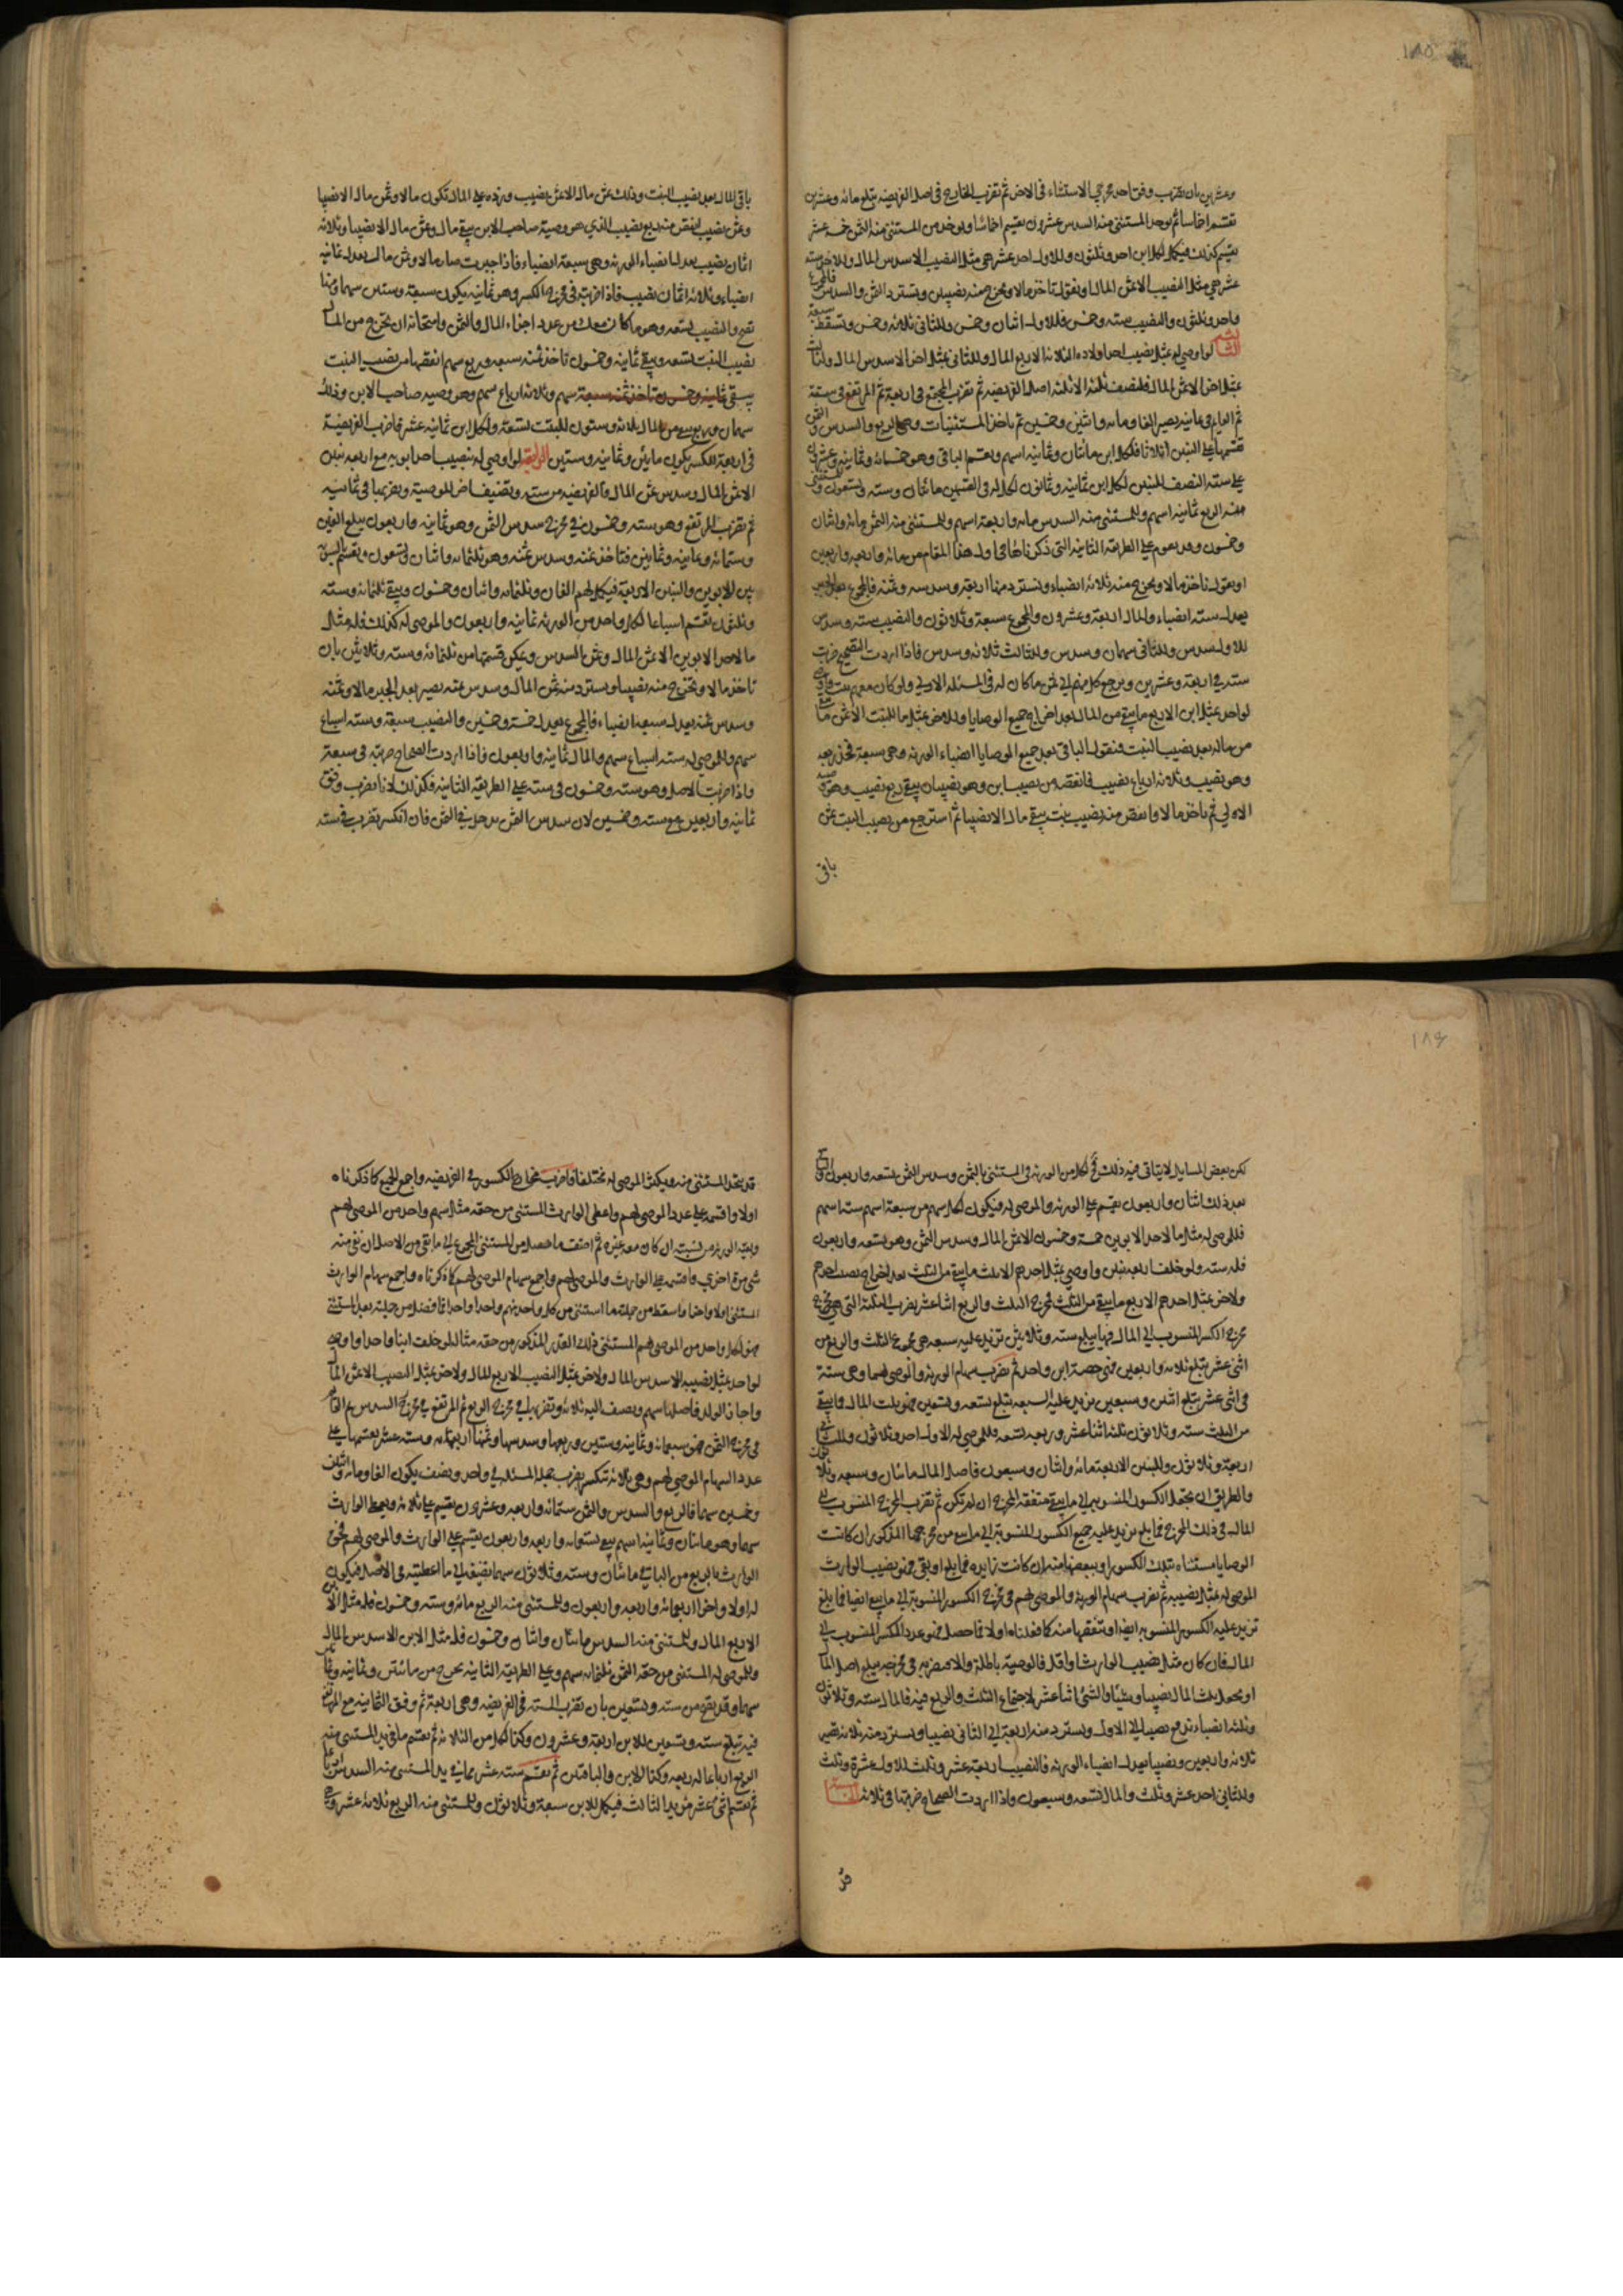 ١٨٥
وعشرين بان تضرب وفق احد مخرجي الاستثناء في الاخر ثم تضرب الخارج في اصل الفريضة تبلغ مائة وعشرين
تقسم اخماسا ثم يوخذ المستثنى منه السدس عشرون يقسم اخماسا ويوخذ من المستثنى منه الثمن خمسة عشر
يقسم كذلك فيكمل لكل ابن احد وثلثون وللاول احد عشر هي مثل النصيب الا سدس المال وللاخر ستة
عشر هي مثل النصيب الا ثمن المال او نقول تاخذ مالا وتخرج منه نصيبين وتسترد الثمن والسدس فالمجموع
واحد وثلثون والنصيب ستة وخمس فللاول اثنان وخمس وللثاني ثلاثة وخمس وتسقط سبعة
الثالثة لو اوصى له بمثل نصيب احد اولاده الثلاثة الا ربع المال وللثاني بمثل اخر الا سدس المال وللثالث
بمثل اخر الا ثمن المال فلنضف ثلثة الا ثلثة اصل الفريضة ثم تضرب المجتمع في اربعة ثم المرتفع في ستة
ثم القايم في ثمانية يصير الفا ومائة واثنين وخمسين ثم تاخذ المستثنيات وهي الربع والسدس والثمن
تقسمها على البنين اثلاثا فلكل ابن مائتان وثمانية اسهم وتقسم الباقي وهو خمسمائة وثمانية وعشرون
على ستة النصف للبنين لكل ابن ثمانية وثمانون فكل له في القسمين مائتان وستة وتسعون وللمستثنى
منه الربع ثمانية اسهم وللمستثنى منه السدس مائة واربعة اسهم وللمستثنى منه الثمن مائة واثنان
وخمسون وقد يعوم على الطريقة الثانية التي ذكرناها في اول هذا المقام من مائة واربعة واربعين
او نقول تاخذ مالا وتخرج منه ثلاثة انصباء وتسترد منها اربعه وسدسه وثمنه فالمجموع بعد الجبر
يعدل ستة انصباء والمال اربعة وعشرون والمجموع سبعة وثلاثون والنصيب ستة وسدس
للاول سدس وللثاني سهمان وسدس وللثالث ثلاثة وسدس فاذا اردت التصحيح ضربت
ستة في اربعة وعشرين ويرجع كل منهم الى ثمن ما كان له في المسئلة الاولى ولو كان معهم بنت واوصى
لواحد بمثل ابن الا ربع ما يبقى من المال بعد اخراج جميع الوصايا وللاخر بمثل ما للبنت الا ثمن ما يبقى
من ماله بعد نصيب البنت فنقول الباقي بعد جميع الوصايا انصباء الورثة وهي سبعة فخذ ربعه
وهو نصيب وثلاثة ارباع نصيب فانقصه من نصيب ابن وهو نصيبان يبقى ربع نصيب وهو وصية
الاولى ثم تاخذ مالا وانقص منه نصيب بنت يبقى مال الا نصيبا ثم استرجع من نصيب البنت ثمن
باقي
باقي المال بعد نصيب البنت وذلك ثمن مال الا ثمن نصيب وزده على المال تكون مالا وثمن مال الا نصيبا
وثمن نصيب انقص منه ربع نصيب الذي هو وصية صاحب الابن يبقى مال وثمن مال الا نصيبا وثلاثة
اثمان نصيب يعدل انصباء الورثة وهي سبعة انصباء فاذا جبرت صار مالا وثمن مال يعدل ثمانية
انصباء وثلاثة اثمان نصيب فاذا ضربته في مخرج الكسر وهو ثمانية يكون سبعة وستين سهما ومنها
تصح والنصيب تسعة وهو ما كان معك من عدد اجزاء المال والثمن وامتحانه ان تخرج من المال
نصيب البنت تسعة ويبقى ثمانية وخمسون تاخذ ثمنه سبعة وربع سهم انقصها من نصيب البنت
يبقى سهم وثلاثة ارباع سهم وهو وصية صاحب الابن وذلك
سهمان وربع يبقى من المال ثلاثة وستون للبنت تسعة ولكل ابن ثمانية عشر فاضرب الفريضة
في اربعة للكسر يكون مايتين وثمانية وستين الرابعة لو اوصى له بنصيب احد ابويه مع اربعة بنين
الا ثمن المال وسدس ثمن المال فالفريضة من ستة وتضيف اخر للوصية وتضربها في ثمانية
ثم تضرب المرتفع وهو ستة وخمسون في مخرج سدس الثمن وهو ثمانية واربعون يبلغ الفين
وستمائة وثمانية وثمانين فتاخذ ثمنه وسدس ثمنه وهو ثلثمائة واثنان وتسعون وتقسم
بين الابوين والبنين الاربعة فيكمل لهم الفان وثلثمائة واثنان وخمسون ويبقى ثلثمائة وستة
وثلثون تقسم اسباعا لكل واحد من الورثة ثمانية واربعون والموصى له كذلك فله مثل
ما لاحد الابوين الا ثمن المال وثمن السدس ويمكن قسمتها من ثلثمائة وستة وثلاثين بان
تاخذ مالا وتخرج منه نصيبا وتسترد منه ثمن المال وسدس ثمنه يصير بعد الجبر مالا وثمنه
وسدس ثمنه يعدل سبعة انصباء فالمجموع يعدل خمسة وخمسين والنصيب سبعة وستة اسباع
سهم والموصى له ستة اسباع سهم والمال ثمانية واربعون فاذا اردت الصحاح ضربته في سبعة
واذا ضربت الاصل وهو ستة وخمسون في ستة على الطريقة الثانية فكذلك لانا نضرب وفق
ثمانية واربعين مع ستة وخمسين لان سدس الثمن يدخل في الثمن فان انكسر تضرب في ستة
١٨٦
لكن بعض المسايل لا يتاتى فيه ذلك ثم لكل من الورثة في المستثنى بالثمن وسدس الثمن تسعة واربعون
بعد ذلك اثنان واربعون يقسم على الورثة والموصى له فيكون لكل سهم من سبعة اسهم ستة اسهم
فللموصى له مثل ما لاحد الابوين خمسة وخمسون الا ثمن المال وسدس الثمن وهو تسعة واربعون
فله ستة ولو خلف اربعة بنين واوصى بمثل احدهم الا ثلث ما يبقى من الثلث بعد اخراج نصيب احدهم
ولاخر بمثل احدهم الا ربع ما يبقى من الثلث فمخرج الثلث والربع اثنا عشر يضرب الثلاثة التي هي مخرج
مخرج الكسر المنسوب الى المال فيها يبلغ ستة وثلاثين تزيد عليه سبعة هي مجموع الثلث والربع من
اثنى عشر يبلغ ثلاثة واربعين فهي حصة ابن واحد ثم تضرب سهام الورثة والموصى لهما وهي ستة
في اثنى عشر يبلغ اثنين وسبعين تزيد عليه السبعة تبلغ تسعة وسبعين فهو ثلث المال فالباقي
من الثلث ستة وثلاثون ثلثه اثنا عشر وربعه تسعة فللموصى له الاول احد وثلاثون وللثاني
اربعة وثلاثون وللبنين الاربعة مائة واثنان وسبعون فاصل المال مائتان وسبعة وثلاثون
والطريق ان تجعل الكسور المنسوبة الى ما يبقى متفقة المخرج ان لم تكن ثم تضرب المخرج المنسوب الى
المال في ذلك المخرج فما بلغ تزيد عليه جميع الكسور المنسوبة الى ما يبقى من مخرجها المذكور ان كانت
الوصايا مستثناة بتلك الكسور او ببعضها منه ان كانت زايدة فما بلغ او بقي فهو نصيب الوارث
الموصى له بمثل نصيبه ثم تضرب سهام الورثة والموصى لهم في مخرج الكسور المنسوبة الى ما يبقى ايضا فما بلغ
تزيد عليه الكسور المنسوبة ايضا او تنقصها منه كما فعلناه اولا فما حصل فهو عدد الكسر المنسوب الى
المال فان كان مثل نصيب الوارث او اقل فالوصية باطلة والا فتضربه في مخرجه يبلغ اصل المال
او تجعل ثلث المال نصيبا وشيئا والشئ اثنا عشر لاجتماع الثلث والربع فيه فالمال ستة وثلاثون
وثلثة انصباء تدفع نصيبا الى الاول وتسترد منه اربعة والى الثاني نصيبا وتسترد منه ثلاثة تصير
ثلاثة واربعين ونصيبا يعدل انصباء الورثة فالنصيب اربعة عشر وثلث للاول عشرة وثلث
وللثاني احد عشر وثلث والمال تسعة وسبعون واذا اردت الصحاح ضربتها في ثلاثة
قد
قد يتحد المستثنى منه ويكثر الموصى له مختلفا فاضرب مخارج الكسور في الفريضة واجمع الجميع كما ذكرناه
اولا واقسمه على عدد الموصى لهم واعطى الوارث المستثنى من حقه مثل سهم واحد من الموصى لهم
وبقية الورثة من نسبته ان كان معه غيره ثم اضف ما حصل من المستثنى المجموع الى ما بقى من الاصل ان بقي منه
شئ مرة اخرى واقسمه على الوارث والموصى لهم واجمع سهام الموصى لهم كما ذكرناه واجمع سهام الوارث
المستثنى اولا واخرا واسقط من جملته ما استثنى من كل واحد منهم واحدا واحدا فما فضل من جملته بعد المستثنى
فهو لكل واحد من الموصى لهم المستثنى ذلك القدر المذكور من حقه مثاله لو خلف ابنا واحدا واوصى
لواحد بمثل نصيبه الا سدس المال ولاخر بمثل النصيب الا ربع المال ولاخر بمثل النصيب الا ثمن المال
واجاز الولد فاصلها سهم ونضف اليه ثلاثة وتضربها في مخرج الربع ثم المرتفع في مخرج السدس ثم القايم
في مخرج الثمن فهو سبعمائة وثمانية وستين وربعها وسدسها وثمنها اربعمائة وستة عشر يقسمها على
عدد السهام الموصى لهم وهي ثلاثة تنكسر يضرب جملة المسئلة في واحد ونصف يكون الفا ومائة واثنين
وخمسين سهما فالربع والسدس والثمن ستمائة واربعة وعشرون يقسم على ثلاثة ويعط الوارث
سهما وهو مائتان وثمانية اسهم يبقى تسعمائة واربعة واربعون يقسم على الوارث والموصى لهم فحق
الوارث بالربع من الباقي مائتان وستة وثلاثون سهما تضيفه الى ما اعطيته في الاصل فيكون
له اولا واخرا اربعمائة واربعة واربعون وللمستثنى منه الربع مائة وستة وخمسون فله مثل الابن
الا ربع المال وللمستثنى منه السدس مائتان واثنان وخمسون فله مثل الابن الا سدس المال
وللموصى له المستثنى من حقه الثمن ثلثمائة سهم وعلى الطريقة الثانية تخرج من مائتين وثمانية وثمانين
سهما وقد تصح من ستة وتسعين بان تضرب الستة في الفريضة وهي اربعة ثم وفق الثمانية مع المرتفع
فيه تبلغ ستة وتسعين للابن اربعة وعشرون وكذا لكل من الثلاثة ثم تقسم ما في يد المستثنى منه
الربع ارباعا له ربعه وكذا للابن والباقيين ثم تقسم ستة عشر مما في يد المستثنى منه السدس ارباعا
ثم تقسم اثنى عشر من يد الثالث فيكمل للابن سبعة وثلاثون وللمستثنى منه الربع ثلاثة عشر وهي